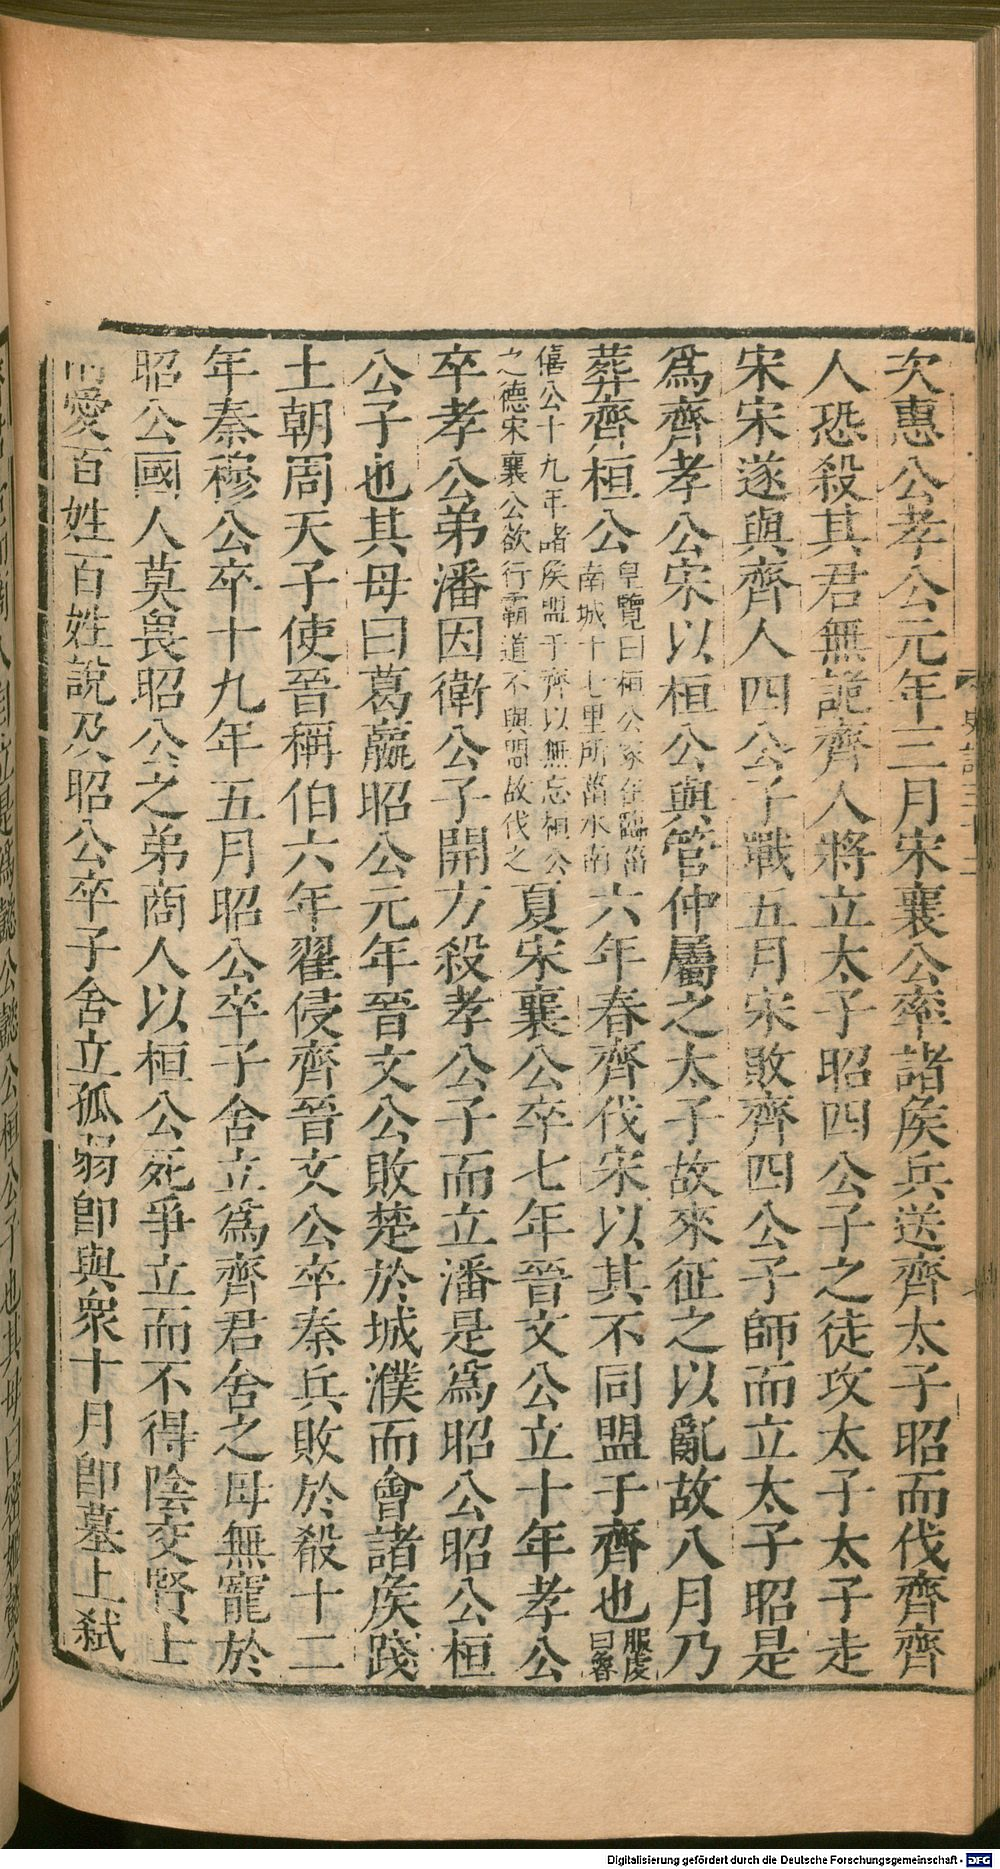 次惠公孝公元年三月宋襄公率諸矦兵送齊太子昭而伐齊齊
人恐殺其君無詭齊人將立太子昭四公子之徒攻太子太子走
宋宋遂與齊人四公子戰五月宋敗齊四公子師而立太子昭是
爲齊孝公宋以桓公與管仲屬之太子故來征之以亂故八月乃
葬齊桓公皇覽曰桓公冢在臨菑南城十七里所菑水南六年春齊伐宋以其不同盟于齊也服虔曰魯
僖公十九年諸矦盟于齊以無忘桓公之德宋襄公欲行霸道不與盟故伐之夏宋襄公卒七年晉文公立十年孝公
卒孝公弟潘因衛公子開方殺孝公子而立潘是爲昭公昭公桓
公子也其母曰葛嬴昭公元年晉文公敗楚於城濮而會諸矦踐
土朝周天子使晉稱伯六年翟侵齊晉文公卒秦兵敗於殽十二
年秦穆公卒十九年五月昭公卒子舍立爲齊君舍之母無寵於
昭公國人莫畏昭公之弟商人以桓公死爭立而不得陰交賢士
愛百姓百姓說及昭公卒子舍立孤弱卽與衆十月卽墓上弑
Digitalisierung gefördert durch die Deutsche Forschungsgemeinschaft - DFG